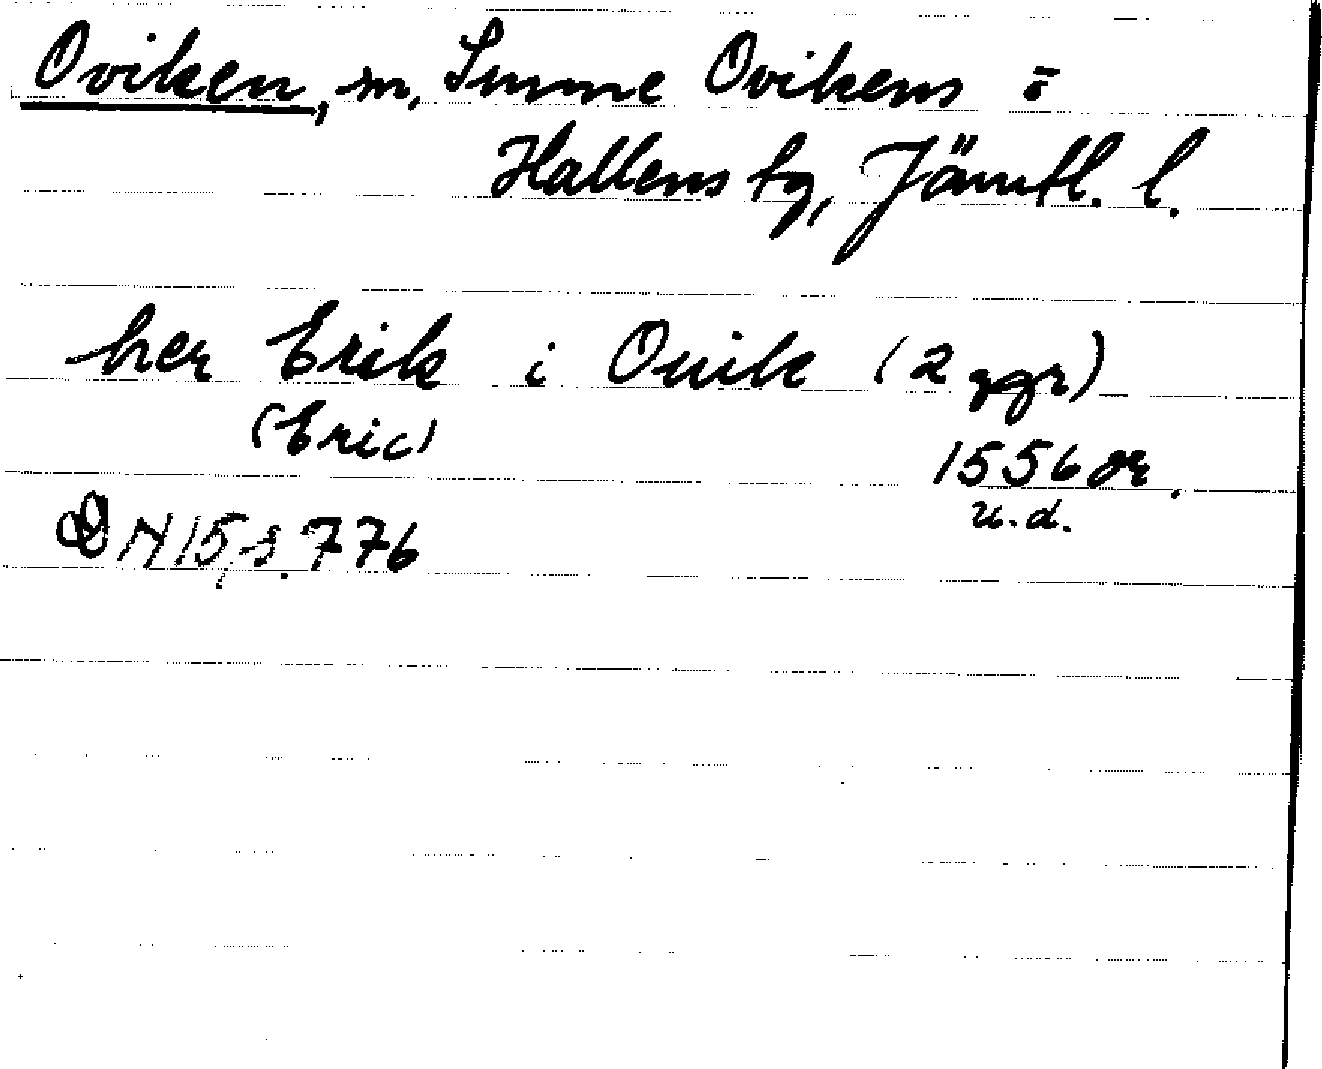 Oviken, sn, Sunne Ovikens o
Hallens tg, Jämtl. l.
her Erik i Ouik (2 ggr)
(Eric)
1556 or.
u.d.
DN 15, s. 776